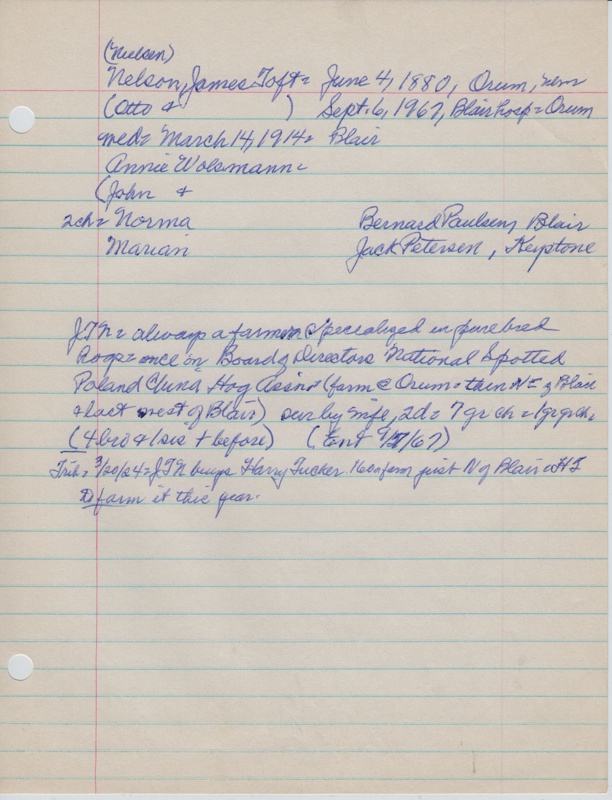 (Nielsen)
Nelson, James Toft = June 4, 1880, Orum,
(Otto & ) Sept. 6, 1967, Blair hosp = Orum
med = March 14, 1914 = Blair
Annie Wolsmann =
(John &
2ch = Norma Bernard Paulsen, Blair
Marian Jack Petersen, Keystone
JTN = always a farmer specialized in purebred
hogs = once on Board of Directors National Spotted
Poland China Hog Assn = (farm @ Orum = then NE of Blair
& last west of Blair) sur by wife, 2d = 7 gr ch = 1 gr gr ch =
(4 bro & 1 sis + before) (Ent 9/7/67)
Trib = 3/20/24 = JTN buys Harry Tucker 160a farm just N of Blair &
to farm it this year.